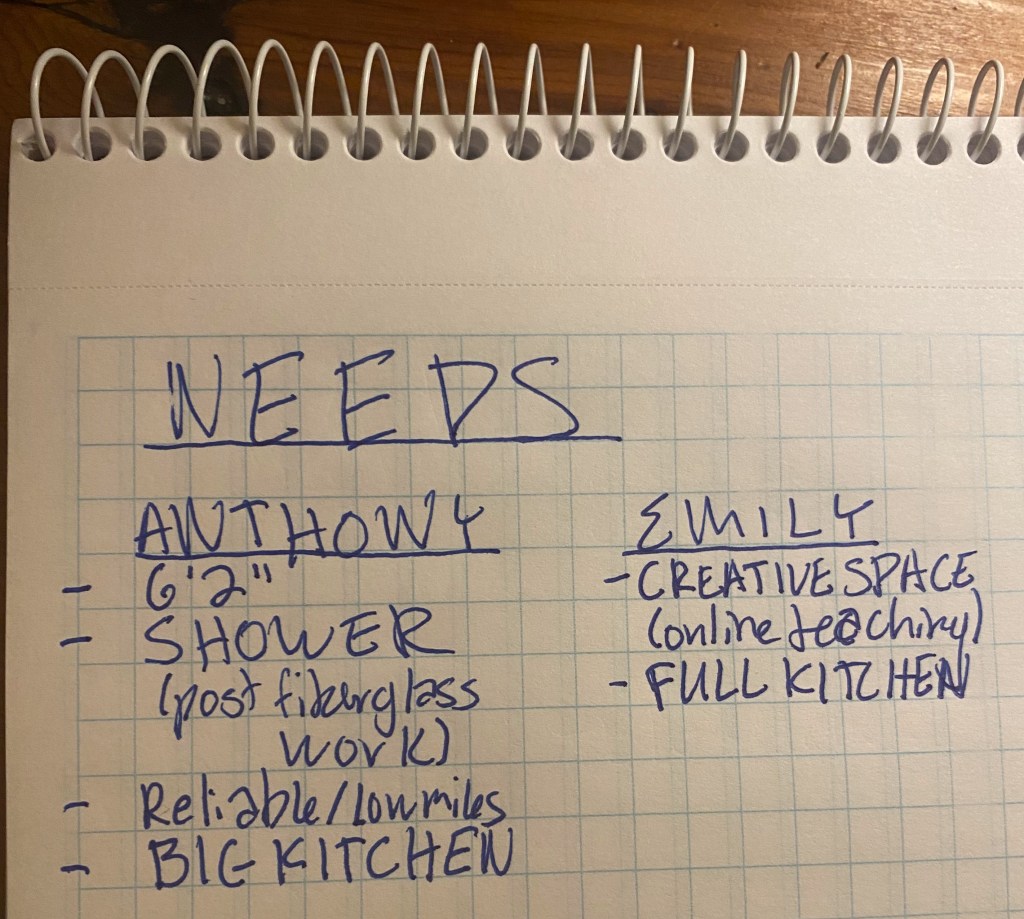 NEEDS
ANTHONY
- 6'2"
- SHOWER
(post fiberglass
work)
- Reliable/low miles
- BIG KITCHEN
EMILY
- CREATIVE SPACE
(online teaching)
- FULL KITCHEN